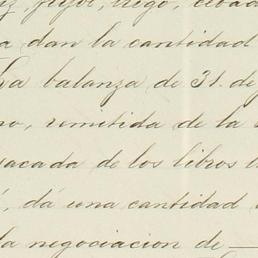 frijol, trigo, cebad
a dan la cantidad
La balanza de 31. de
no, remitida de la
sacada de los libros d
, dá una cantidad
la negociacion de —